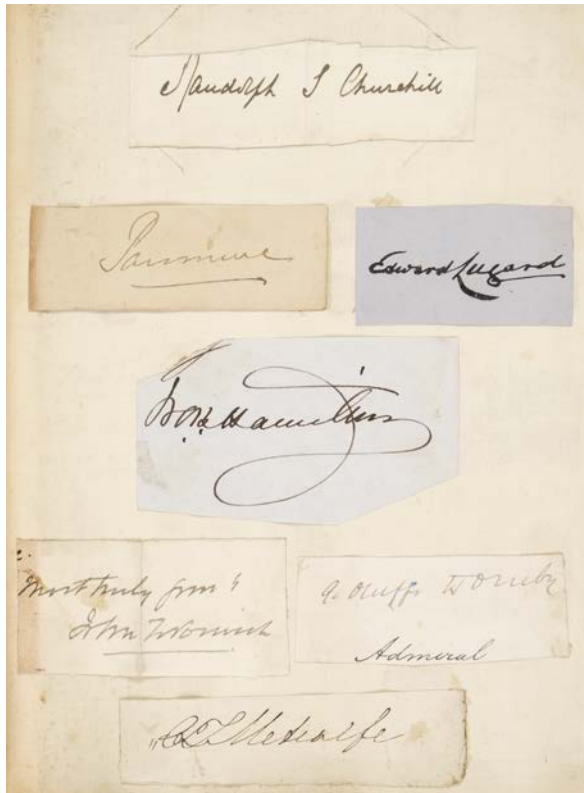 Randolph S Churchill
Panmure
Edward Lugard
Hamilton
Most truly yours
John
Hornby
Admiral
Metcalfe